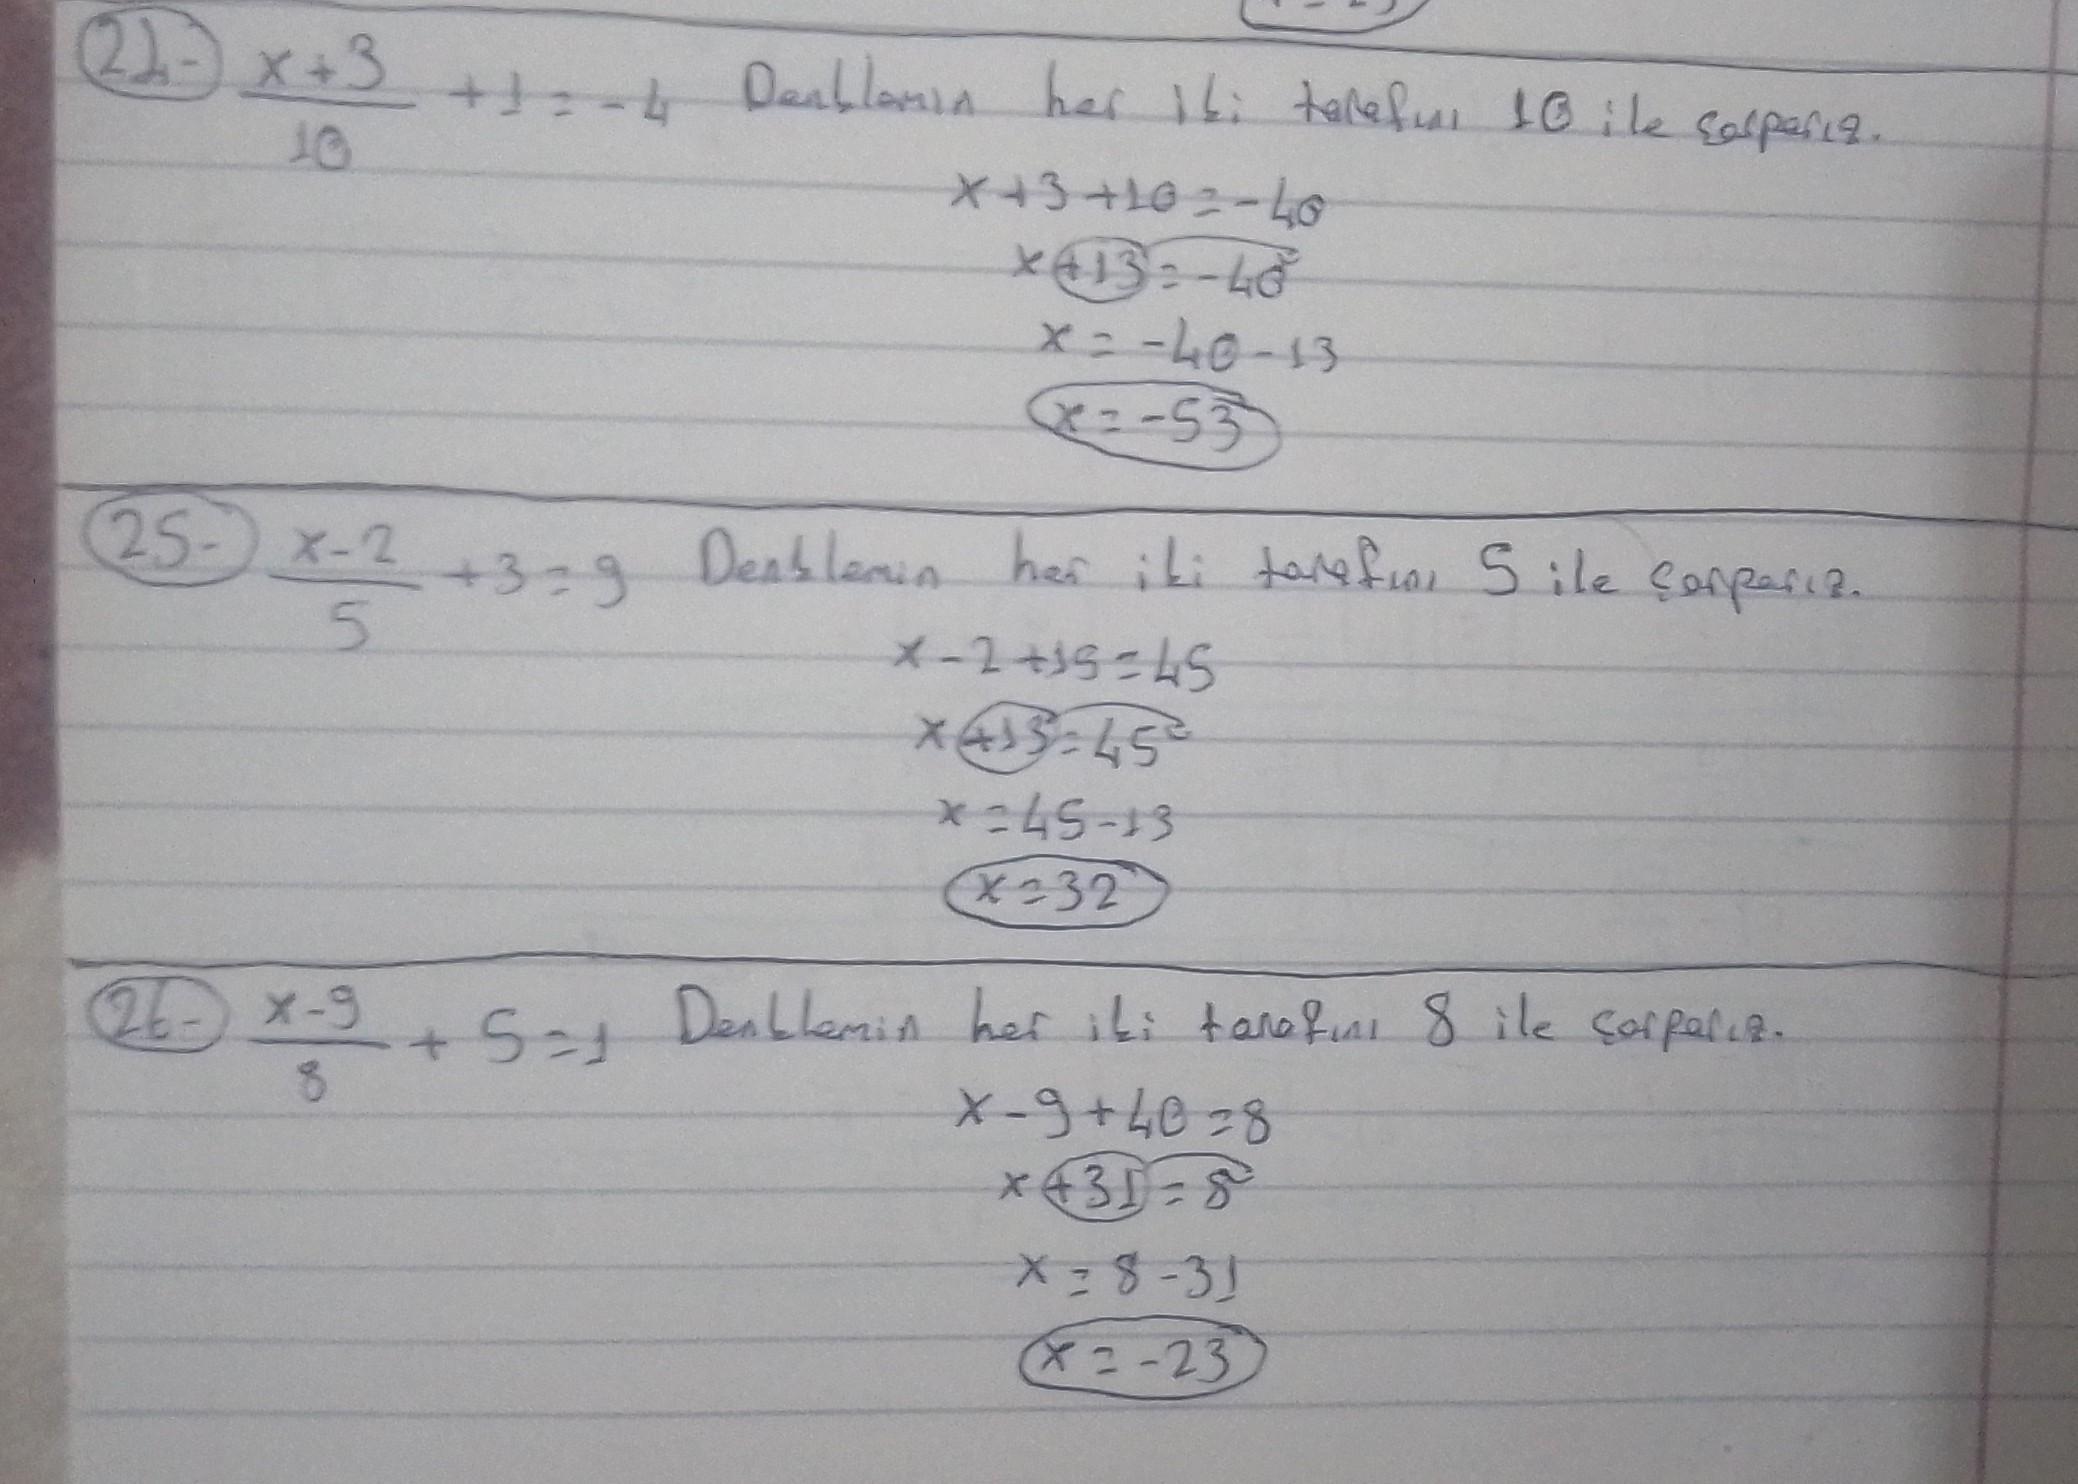 24- x+3/10 +1=-4 Denklemin her iki tarafını 10 ile çarparız.
x+3+10=-40
x+13=-40
x=-40-13
x=-53
25- x-2/5 +3=9 Denklemin her iki tarafını 5 ile çarparız.
x-2+15=45
x+13=45
x=45-13
x=32
26- x-9/8 +5=1 Denklemin her iki tarafını 8 ile çarparız.
x-9+40=8
x+31=8
x=8-31
x=-23